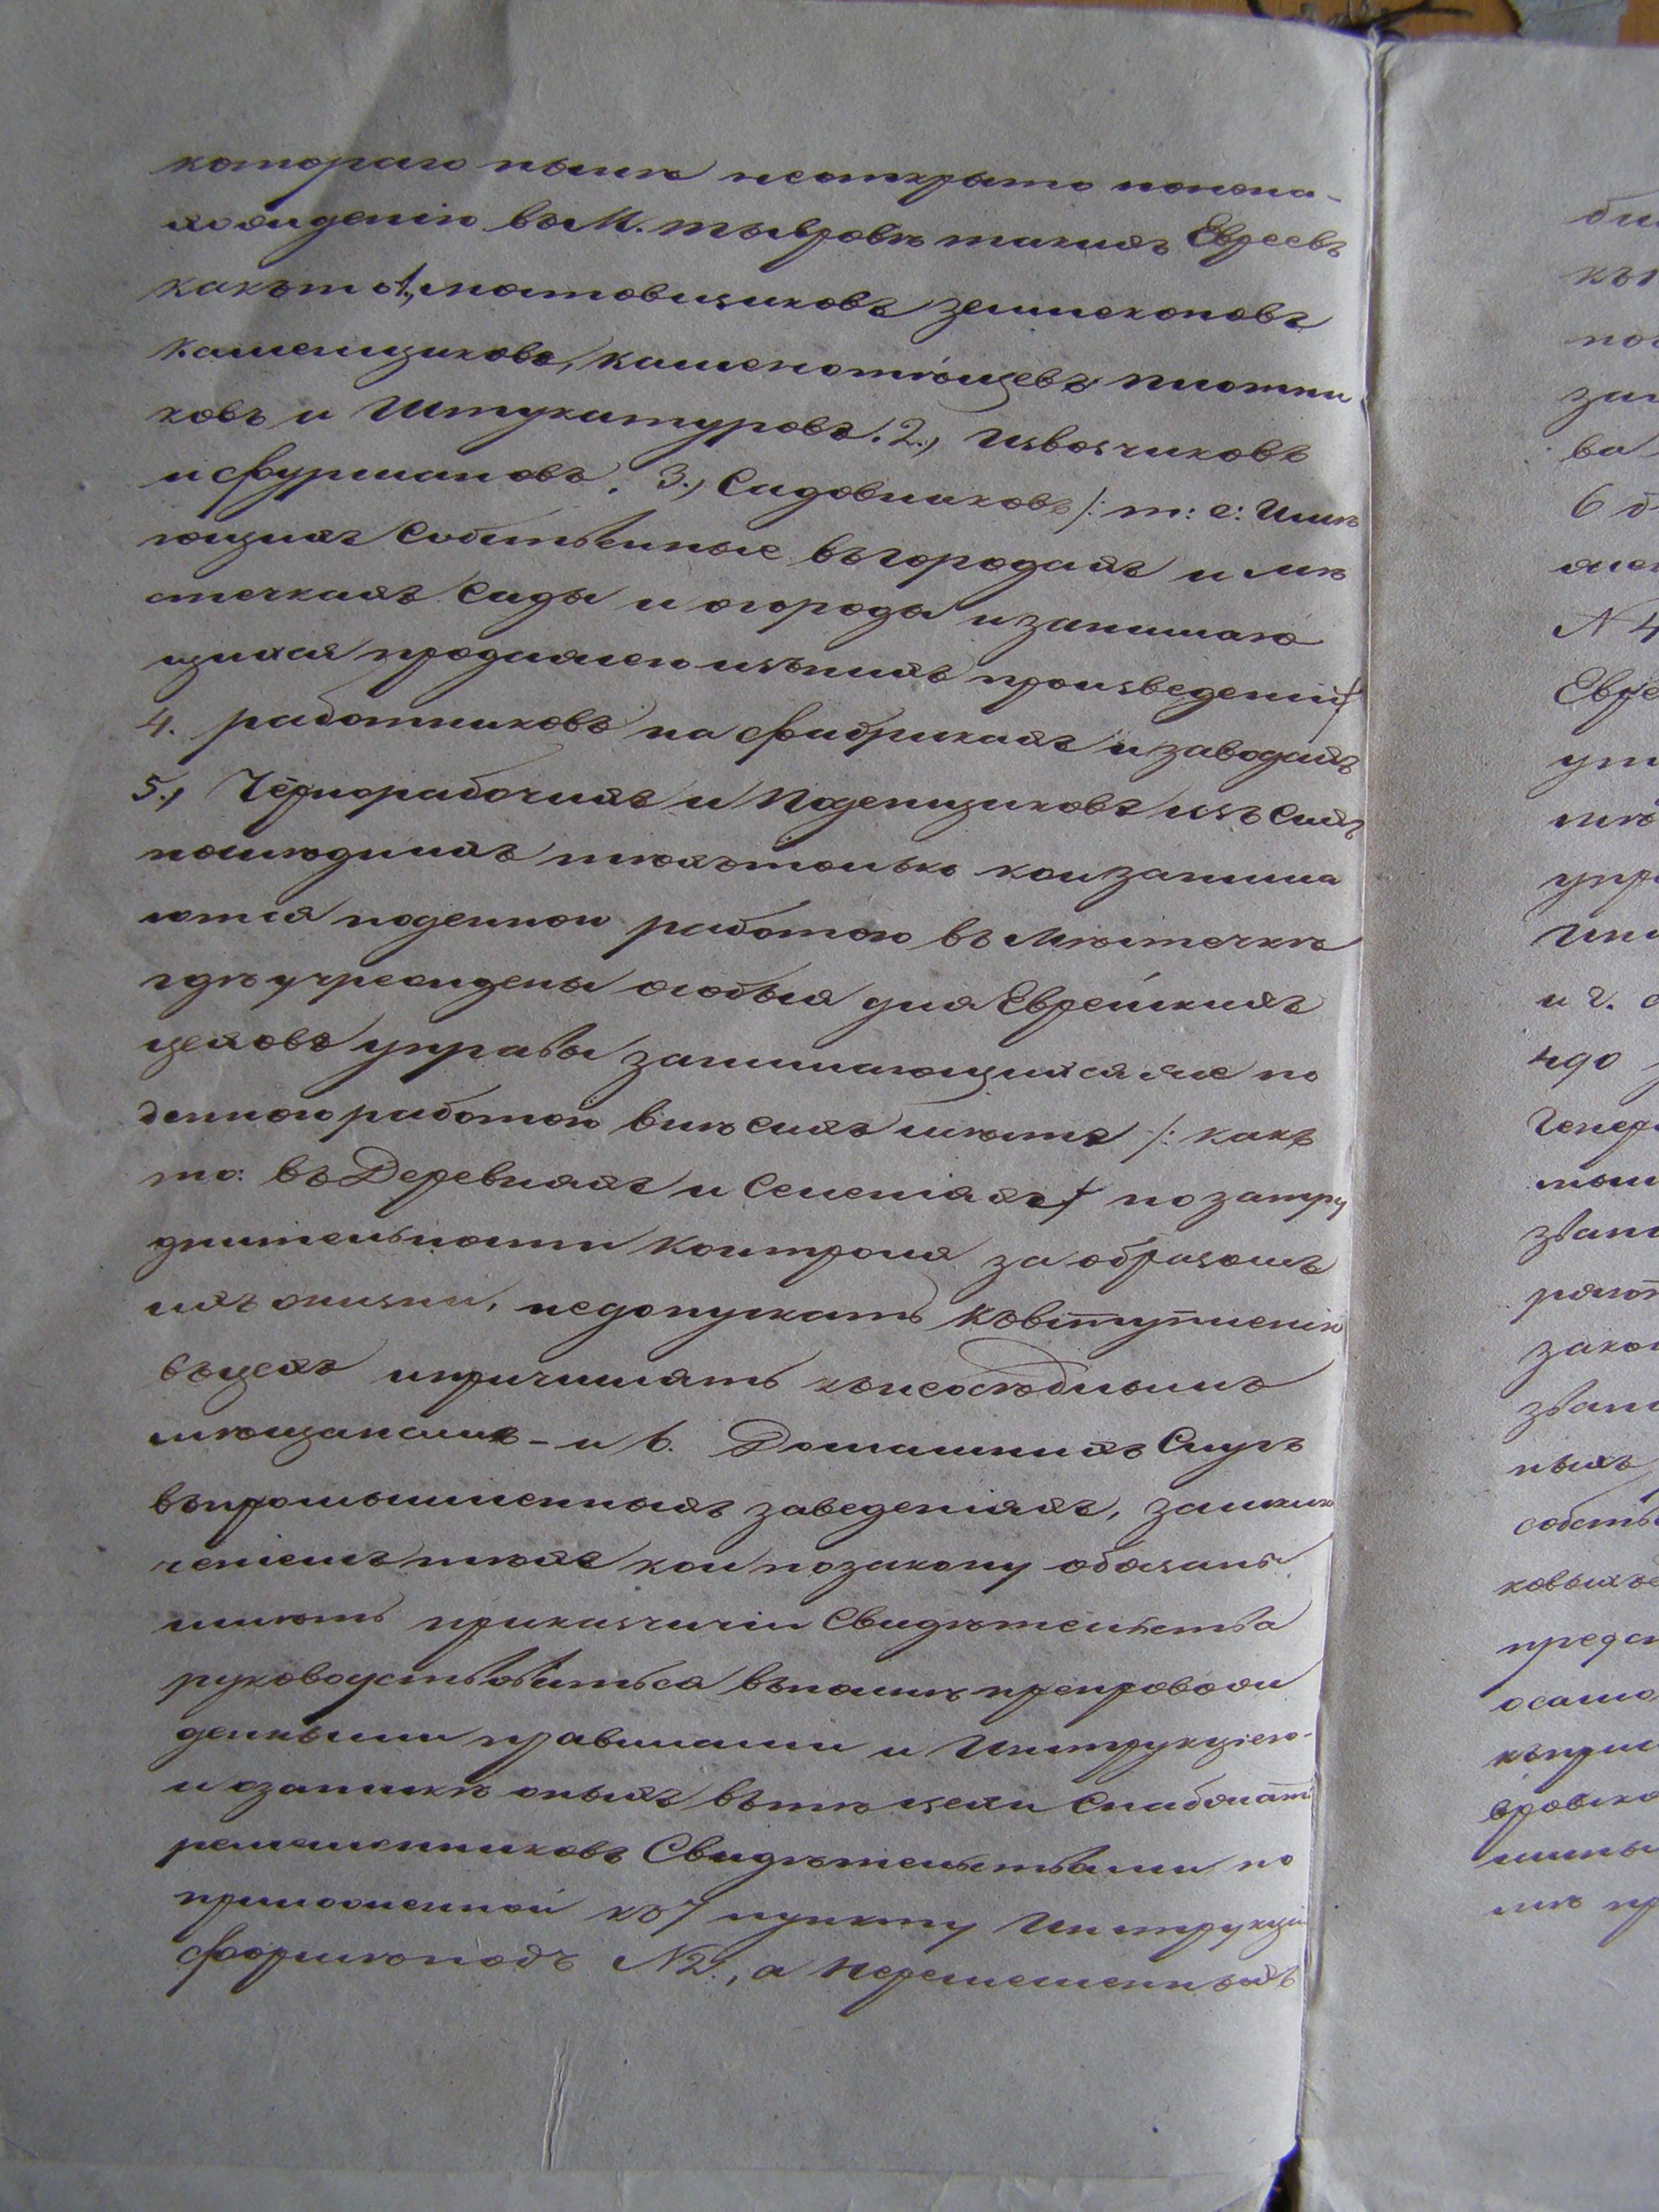 котораго ныне неоткрыто понена-
хождению въ М. тывровѣ такихъ Евреевъ
какъ то 1., мостовщиковъ землекоповъ
каменщиковъ, каменотёщевъ плотни
ковъ и Штукатуровъ. 2., Извозчиковъ
и фурмановъ. 3., Садовниковъ /: т: е: Имѣ
ющихъ Собственные въ городахъ и мѣ
стечкахъ Сады и огороды и занимаю
щихся продажею изънихъ произведеній/
4. работниковъ на фабрикахъ и заводахъ
5., Чернорабочихъ и Поденщиковъ изъ Сихъ
последнихъ тѣхъ только кои занима
ются поденною работою въ Мѣстечкѣ
гдѣ учреждены особыя для Еврейскихъ
цеховъ управы занимающихся же по
денною работою внѣ Сихъ мѣстъ /: какъ
то: въ Деревняхъ и Селеніяхъ/ по затру
днительности контроля за образомъ
ихъ жизни, недопускать ковступленію
въ цехъ и причислять кънеосѣдлымъ
мѣщанамъ - и 6. Домашнихъ Слугъ
въпромышленныхъ заведеніяхъ, заиклю
ченіемъ тѣхъ кои позакону обязаны
имѣть приказчичіи Свидѣтельства
руководствоваться въполнѣ препровож
денными правилами и Инструкціею-
и озапискѣ оныхъ вътѣ цехи Снабжать
ремесленниковъ Свидѣтельствами по
приложенной къ 7 пункту Инструкціи
формѣ подъ N 2., а неремесленныхъ
би
къ
по
за
ва
6 д
жен
N 4
Евре
уп
мѣ
упр
Ин
и г. с
ндо
Генер
тым
зван
ряют
зако
зван
ныхъ
собств
ковыхъ
предс
осамо
къпри
вровско
мины
мъ пр